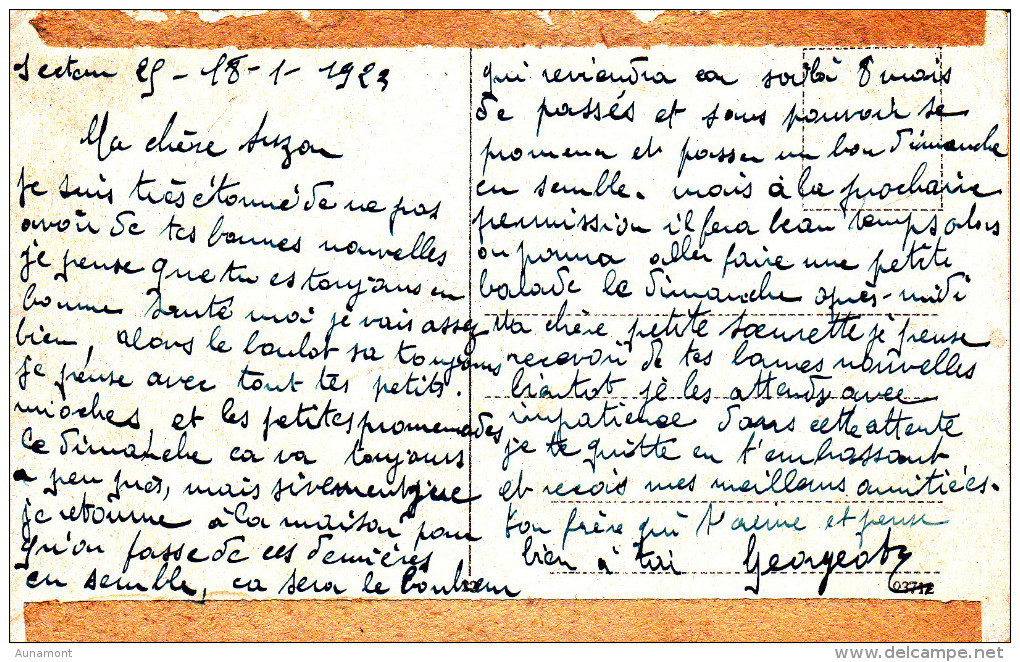 Secteur 25 - 18-1-1923
Ma chère Suzon
je suis très étonné de ne pas
avoir de tes bonnes nouvelles
je pense que tu es toujours en
bonne santé moi je vais assez
bien, alors le boulot sa toujours
je pense avec tout tes petits
mioches, et les petites promenades
le dimanche ca va toujours
a peu près, mais vivement que
je retourne à la maison pour
qu'on fasse de ces dernières
en semble, ca sera le bonheur
qui reviendra ca voilà 8 mois
de passés et sans pouvoir se
promener et passer un bon dimanche
en semble. mais à la prochaine
permission il fera beau temps alors
on pourra aller faire une petite
balade le dimanche après-midi
Ma chère petite soeurette je pense
recevoir de tes bonnes nouvelles
bientot je les attends avec
impatience dans cette attente
je te quitte en t'embrassant
et recois mes meilleurs amitiées.
ton frère qui t'aime et pense
bien à toi Georges
03712
Aunamont
www.delcampe.net